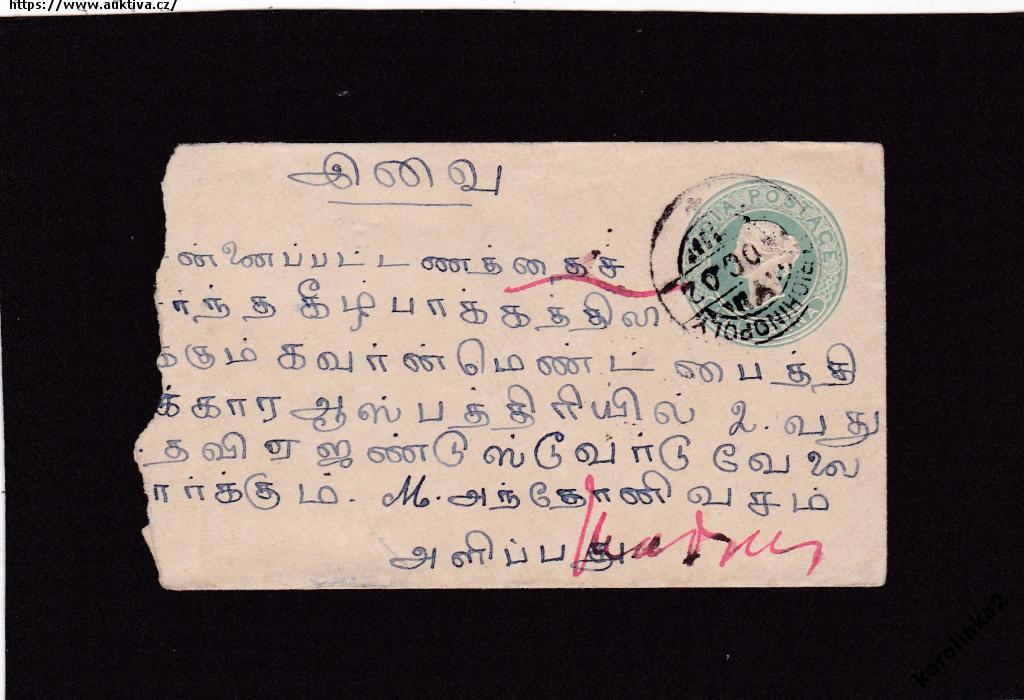 https://www.auktiva.cz/
இவை
ன்னைப்பட்டணத்தைச்
ர்ந்த கீழ்பாக்கத்தில
க்கும் கவர்ன்மெண்ட் பைத்தி
க்கார ஆஸ்பத்திரியில் 2. வது
தவி ஏஜண்டு ஸ்டூவர்டு வேலை
ார்க்கும். M. அந்தோணி வசம்
அளிப்பது
Madras
INDIA POSTAGE
TRICHINOPOLY
karolinka2